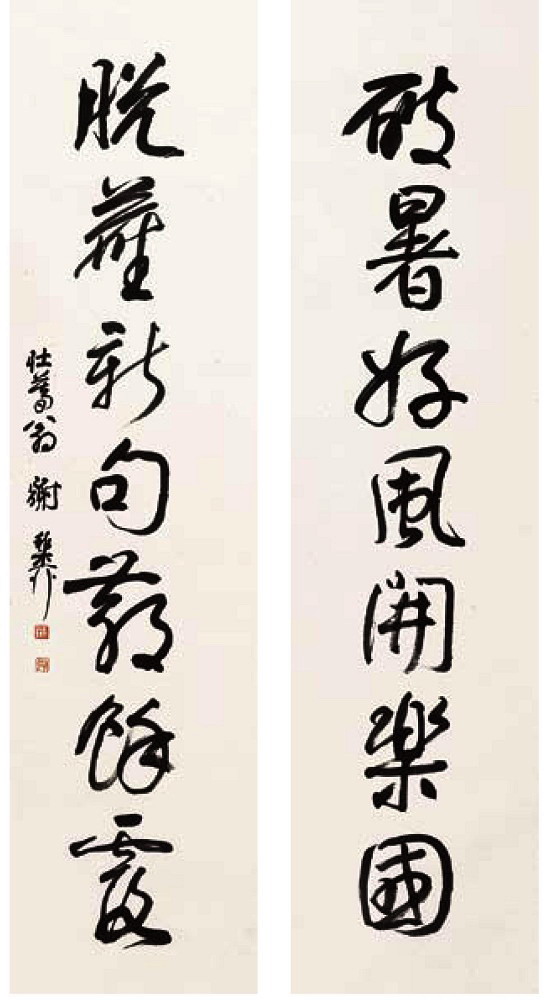 破暑好風開樂國
脫蘿新句散餘霞
壯暮翁 謝稚柳